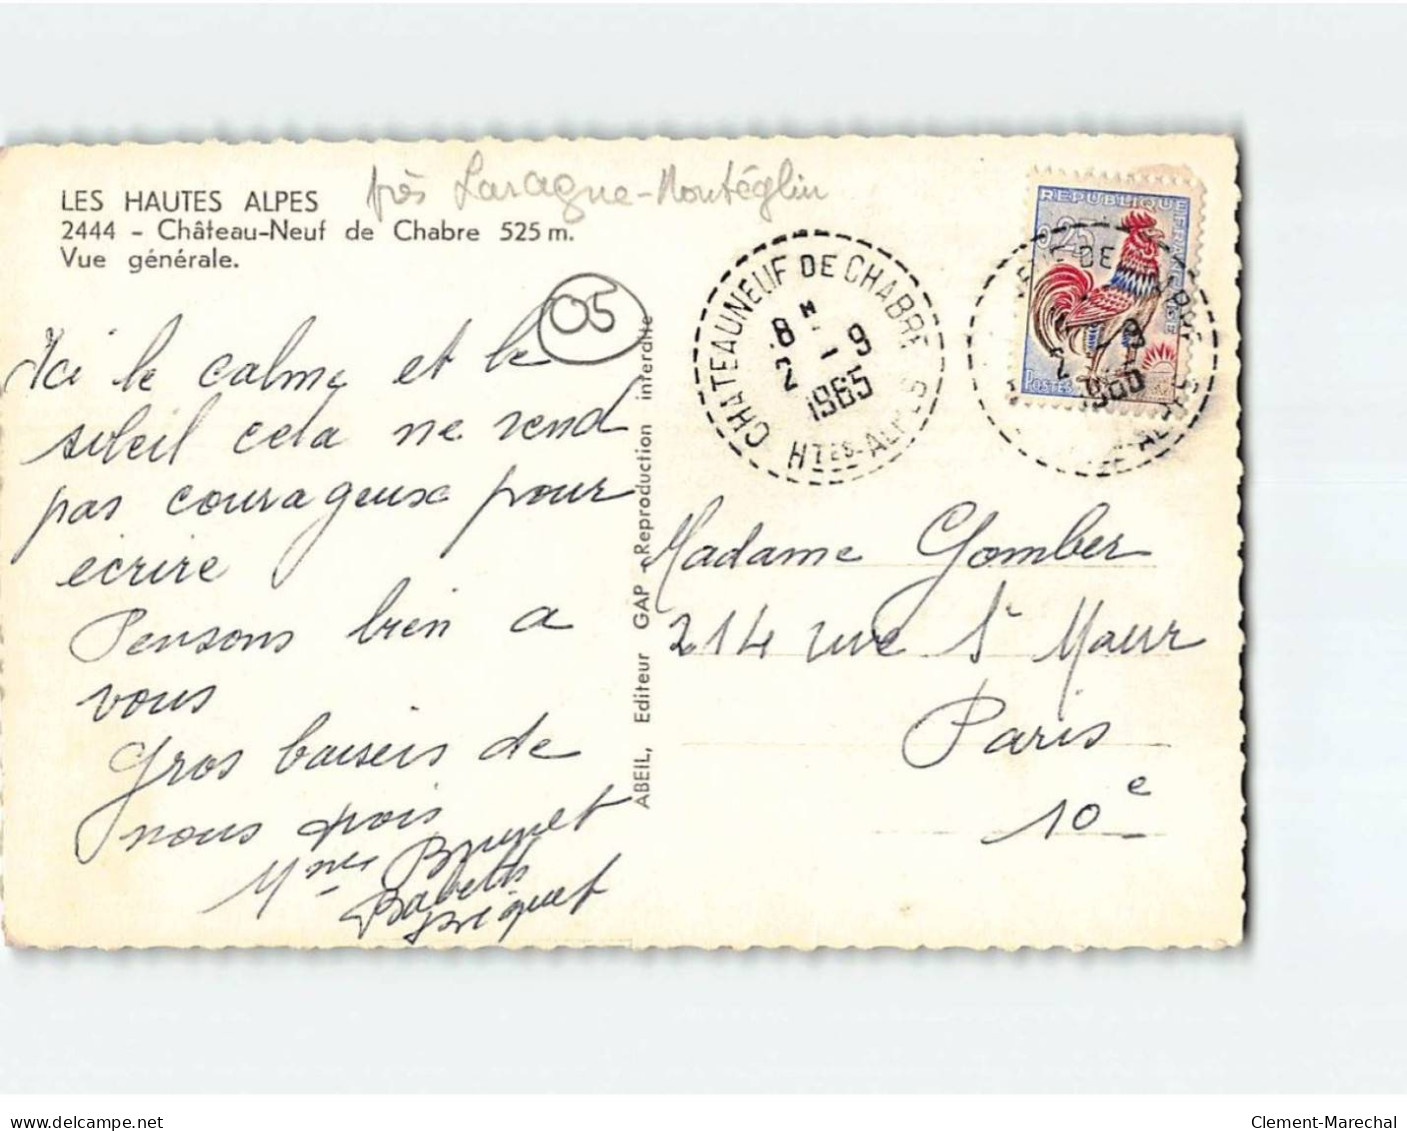 LES HAUTES ALPES
2444 - Château-Neuf de Chabre 525 m.
Vue générale.
près Laragne-Montéglin
05
Ici le calme et le
soleil cela ne rend
pas courageux pour
ecrire
Pensons bien a
vous
Gros baisers de
nous trois
Mmes Brunet
Babeth
Briquet
ABEIL, Editeur GAP - Reproduction interdite
CHATEAUNEUF DE CHABRE
8 H - 9
2
1965
HTES-ALPES
REPUBLIQUE FRANÇAISE
0,25
POSTES
Madame Gomber
214 rue St Maur
Paris
10e
www.delcampe.net
Clement-Marechal